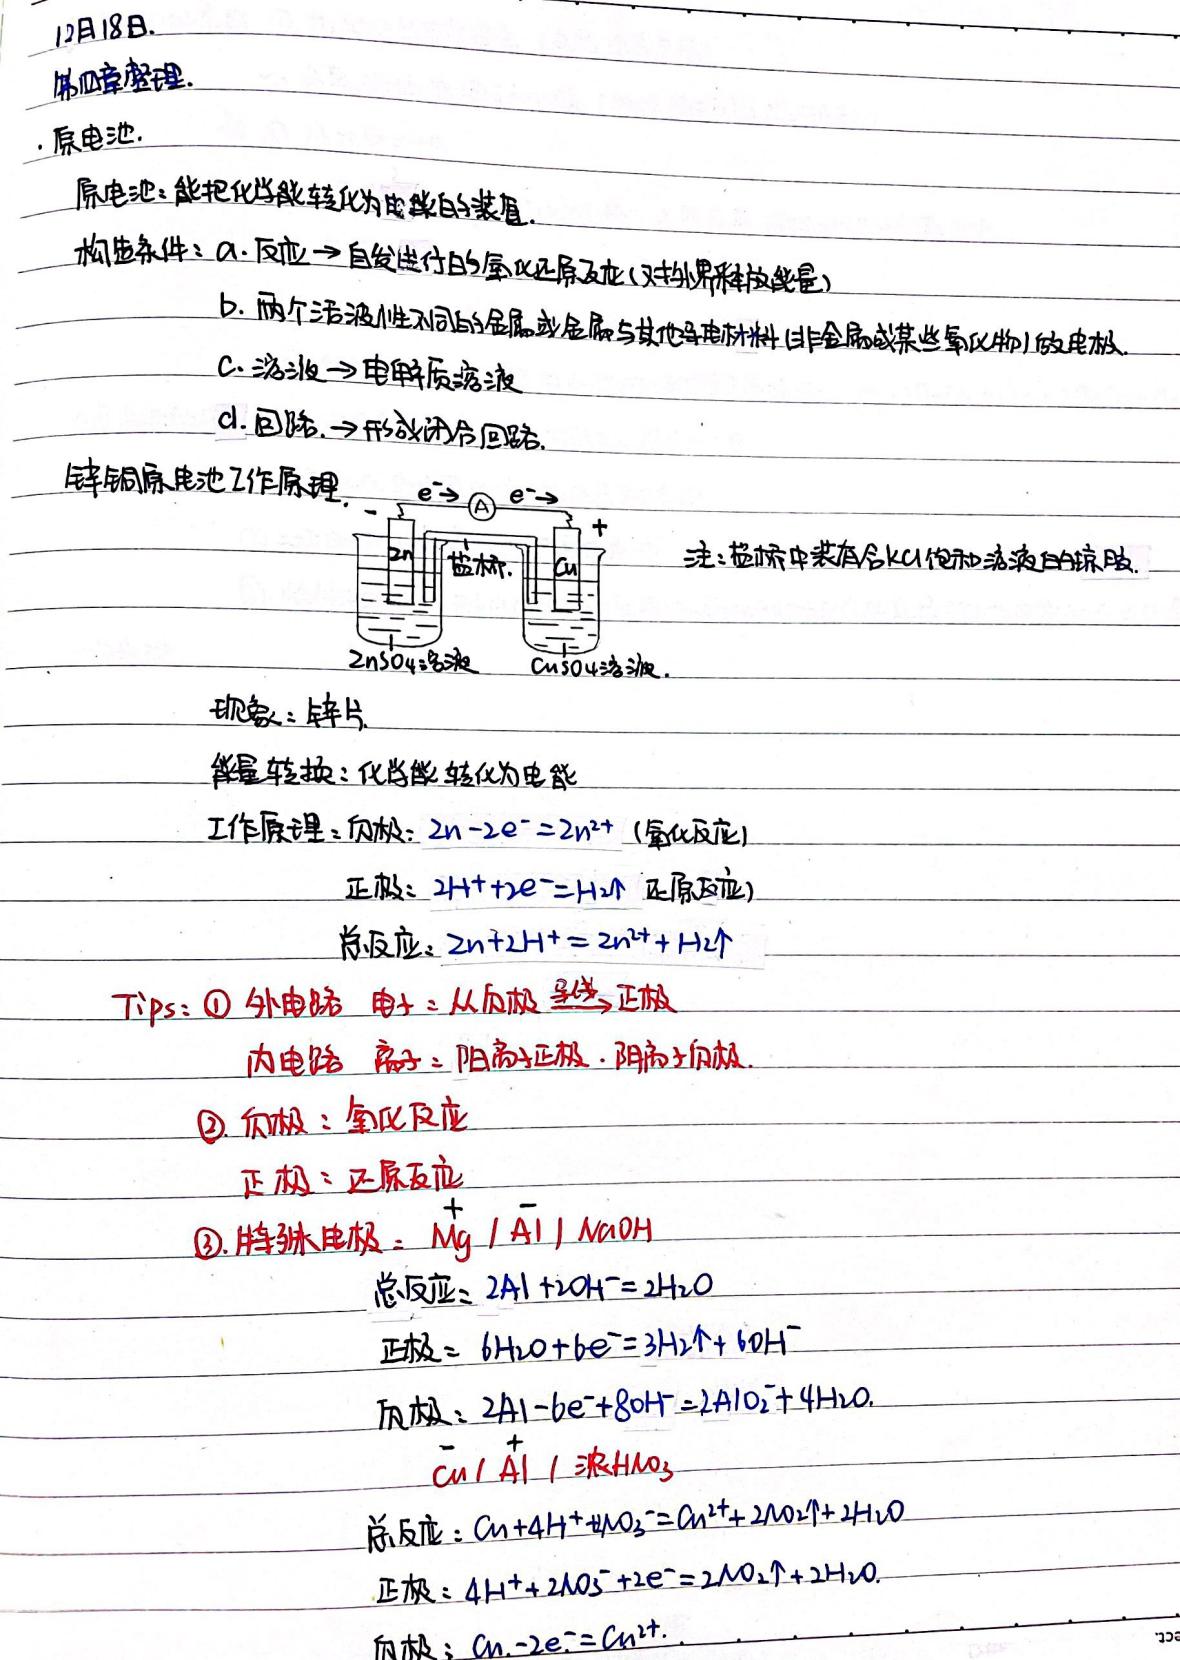 12月18日.
第四章整理.
·原电池.
原电池：能把化学能转化为电能的装置.
构造条件：a.反应→自发进行的氧化还原反应(对外界释放能量)
b.两个活泼性不同的金属或金属与其他导电材料(非金属或某些氧化物)做电极.
C.溶液→电解质溶液
d.回路.→形成闭合回路.
锌铜原电池工作原理.
e⁻→ A e⁻→
- +
Zn 盐桥. Cu
注：盐桥中装有含KCl饱和溶液的琼胶.
ZnSO4溶液 CuSO4溶液.
现象：锌片
能量转换：化学能转化为电能
工作原理：负极：Zn-2e⁻=Zn²⁺ (氧化反应)
正极：2H⁺+2e⁻=H2↑ 还原反应)
总反应：Zn+2H⁺=Zn²⁺+H2↑
Tips：① 外电路 电子：从负极 导线→ 正极
内电路 离子：阳离子正极.阴离子负极.
②.负极：氧化反应
正极：还原反应
+ -
③.特殊电极：Mg / Al / NaOH
总反应：2Al+2OH⁻=2H2O
正极：6H2O+6e⁻=3H2↑+6OH⁻
负极：2Al-6e⁻+8OH⁻=2AlO2⁻+4H2O.
- +
Cu / Al / 浓HNO3
总反应：Cu+4H⁺+2NO3⁻=Cu²⁺+2NO2↑+2H2O
正极：4H⁺+2NO3⁻+2e⁻=2NO2↑+2H2O.
负极：Cu-2e⁻=Cu²⁺.